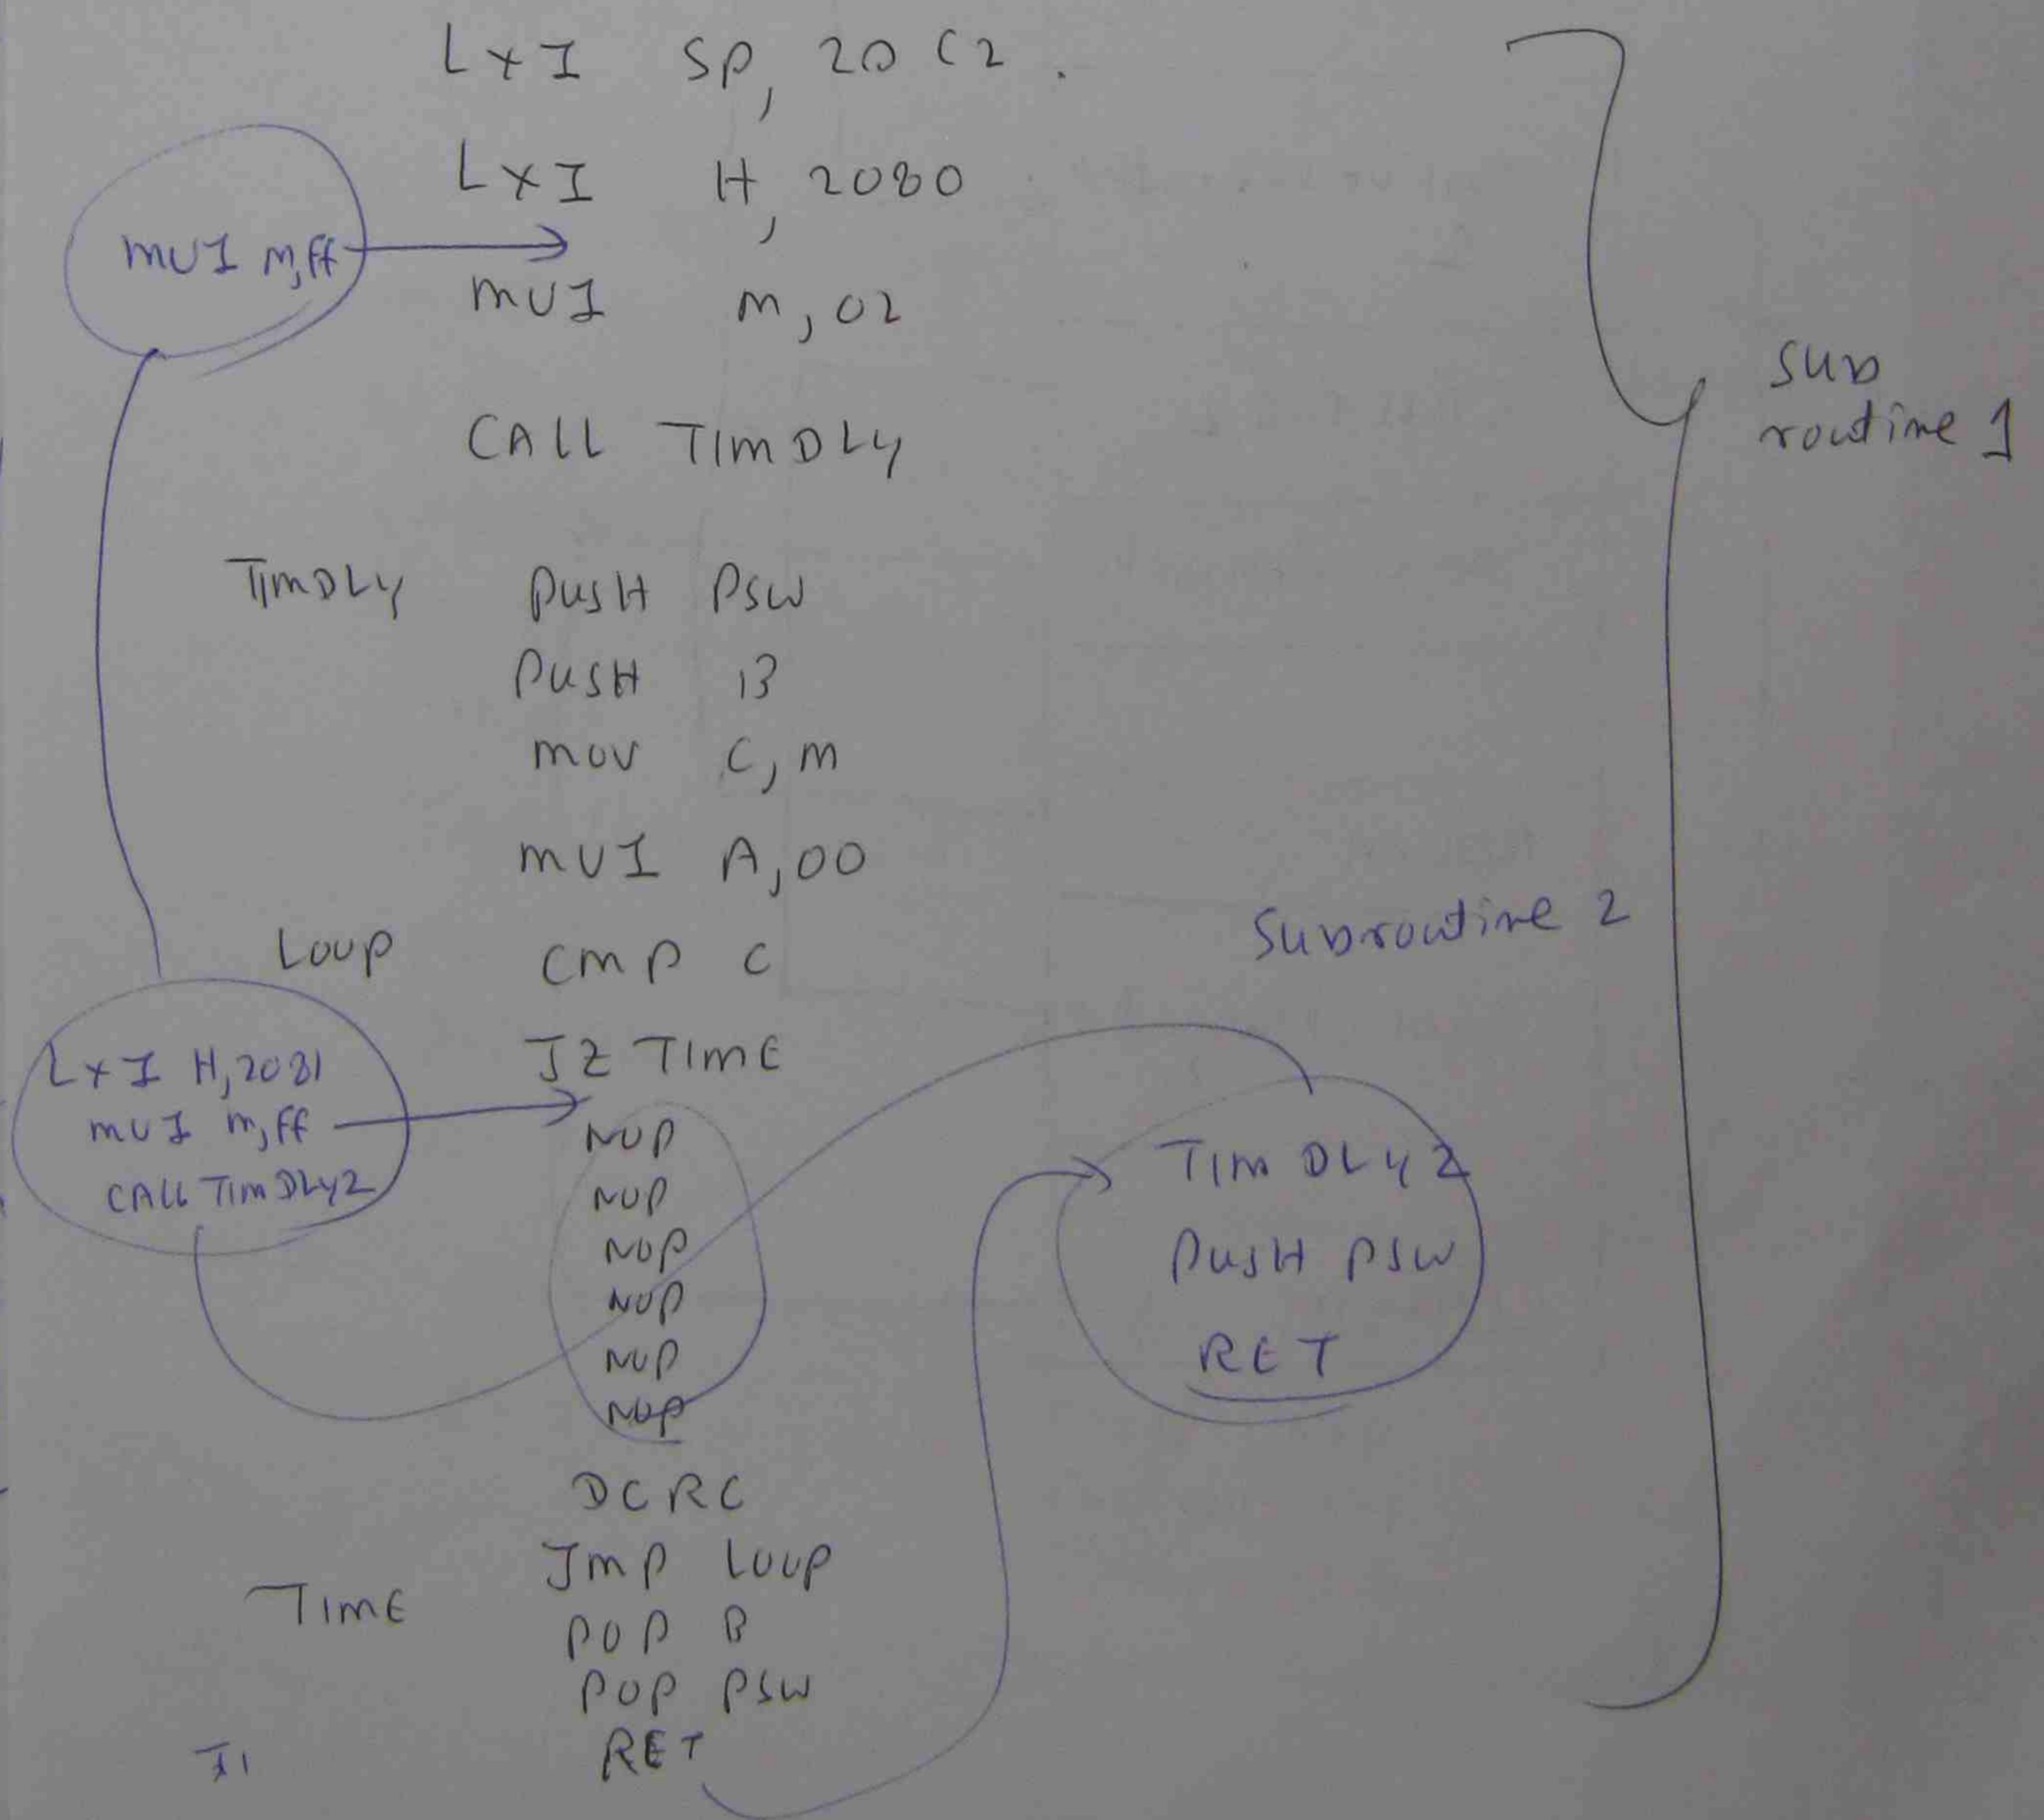 LXI SP, 20C2.
LXI H, 2080
MVI M,ff
MVI M,02
CALL TIMDLY
Sub
routine 1
TIMDLY PUSH PSW
PUSH B
MOV C,M
MVI A,00
Loop CMP C
Subroutine 2
JZ TIME
LXI H,2081
MVI M,ff
CALL TIMDLY2
NOP
NOP
NOP
NOP
NOP
NOP
TIMDLY2
PUSH PSW
RET
DCRC
JMP Loop
TIME POP B
POP PSW
RET